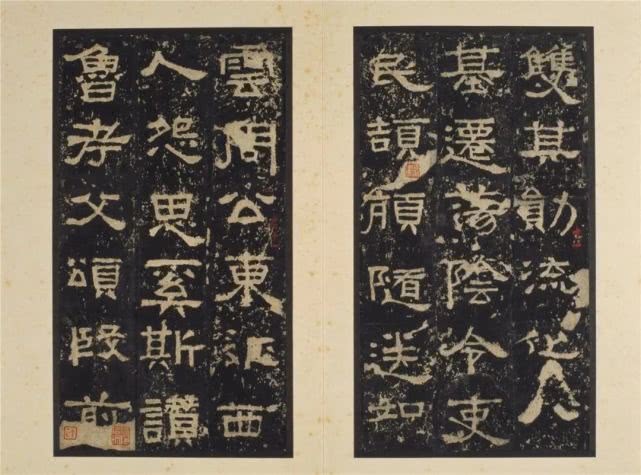 雙其勛流化八
基遷蕩陰令吏
民頡頏隨送如
雲周公東征西
人怨思奚斯讚
魯考父頌殷前